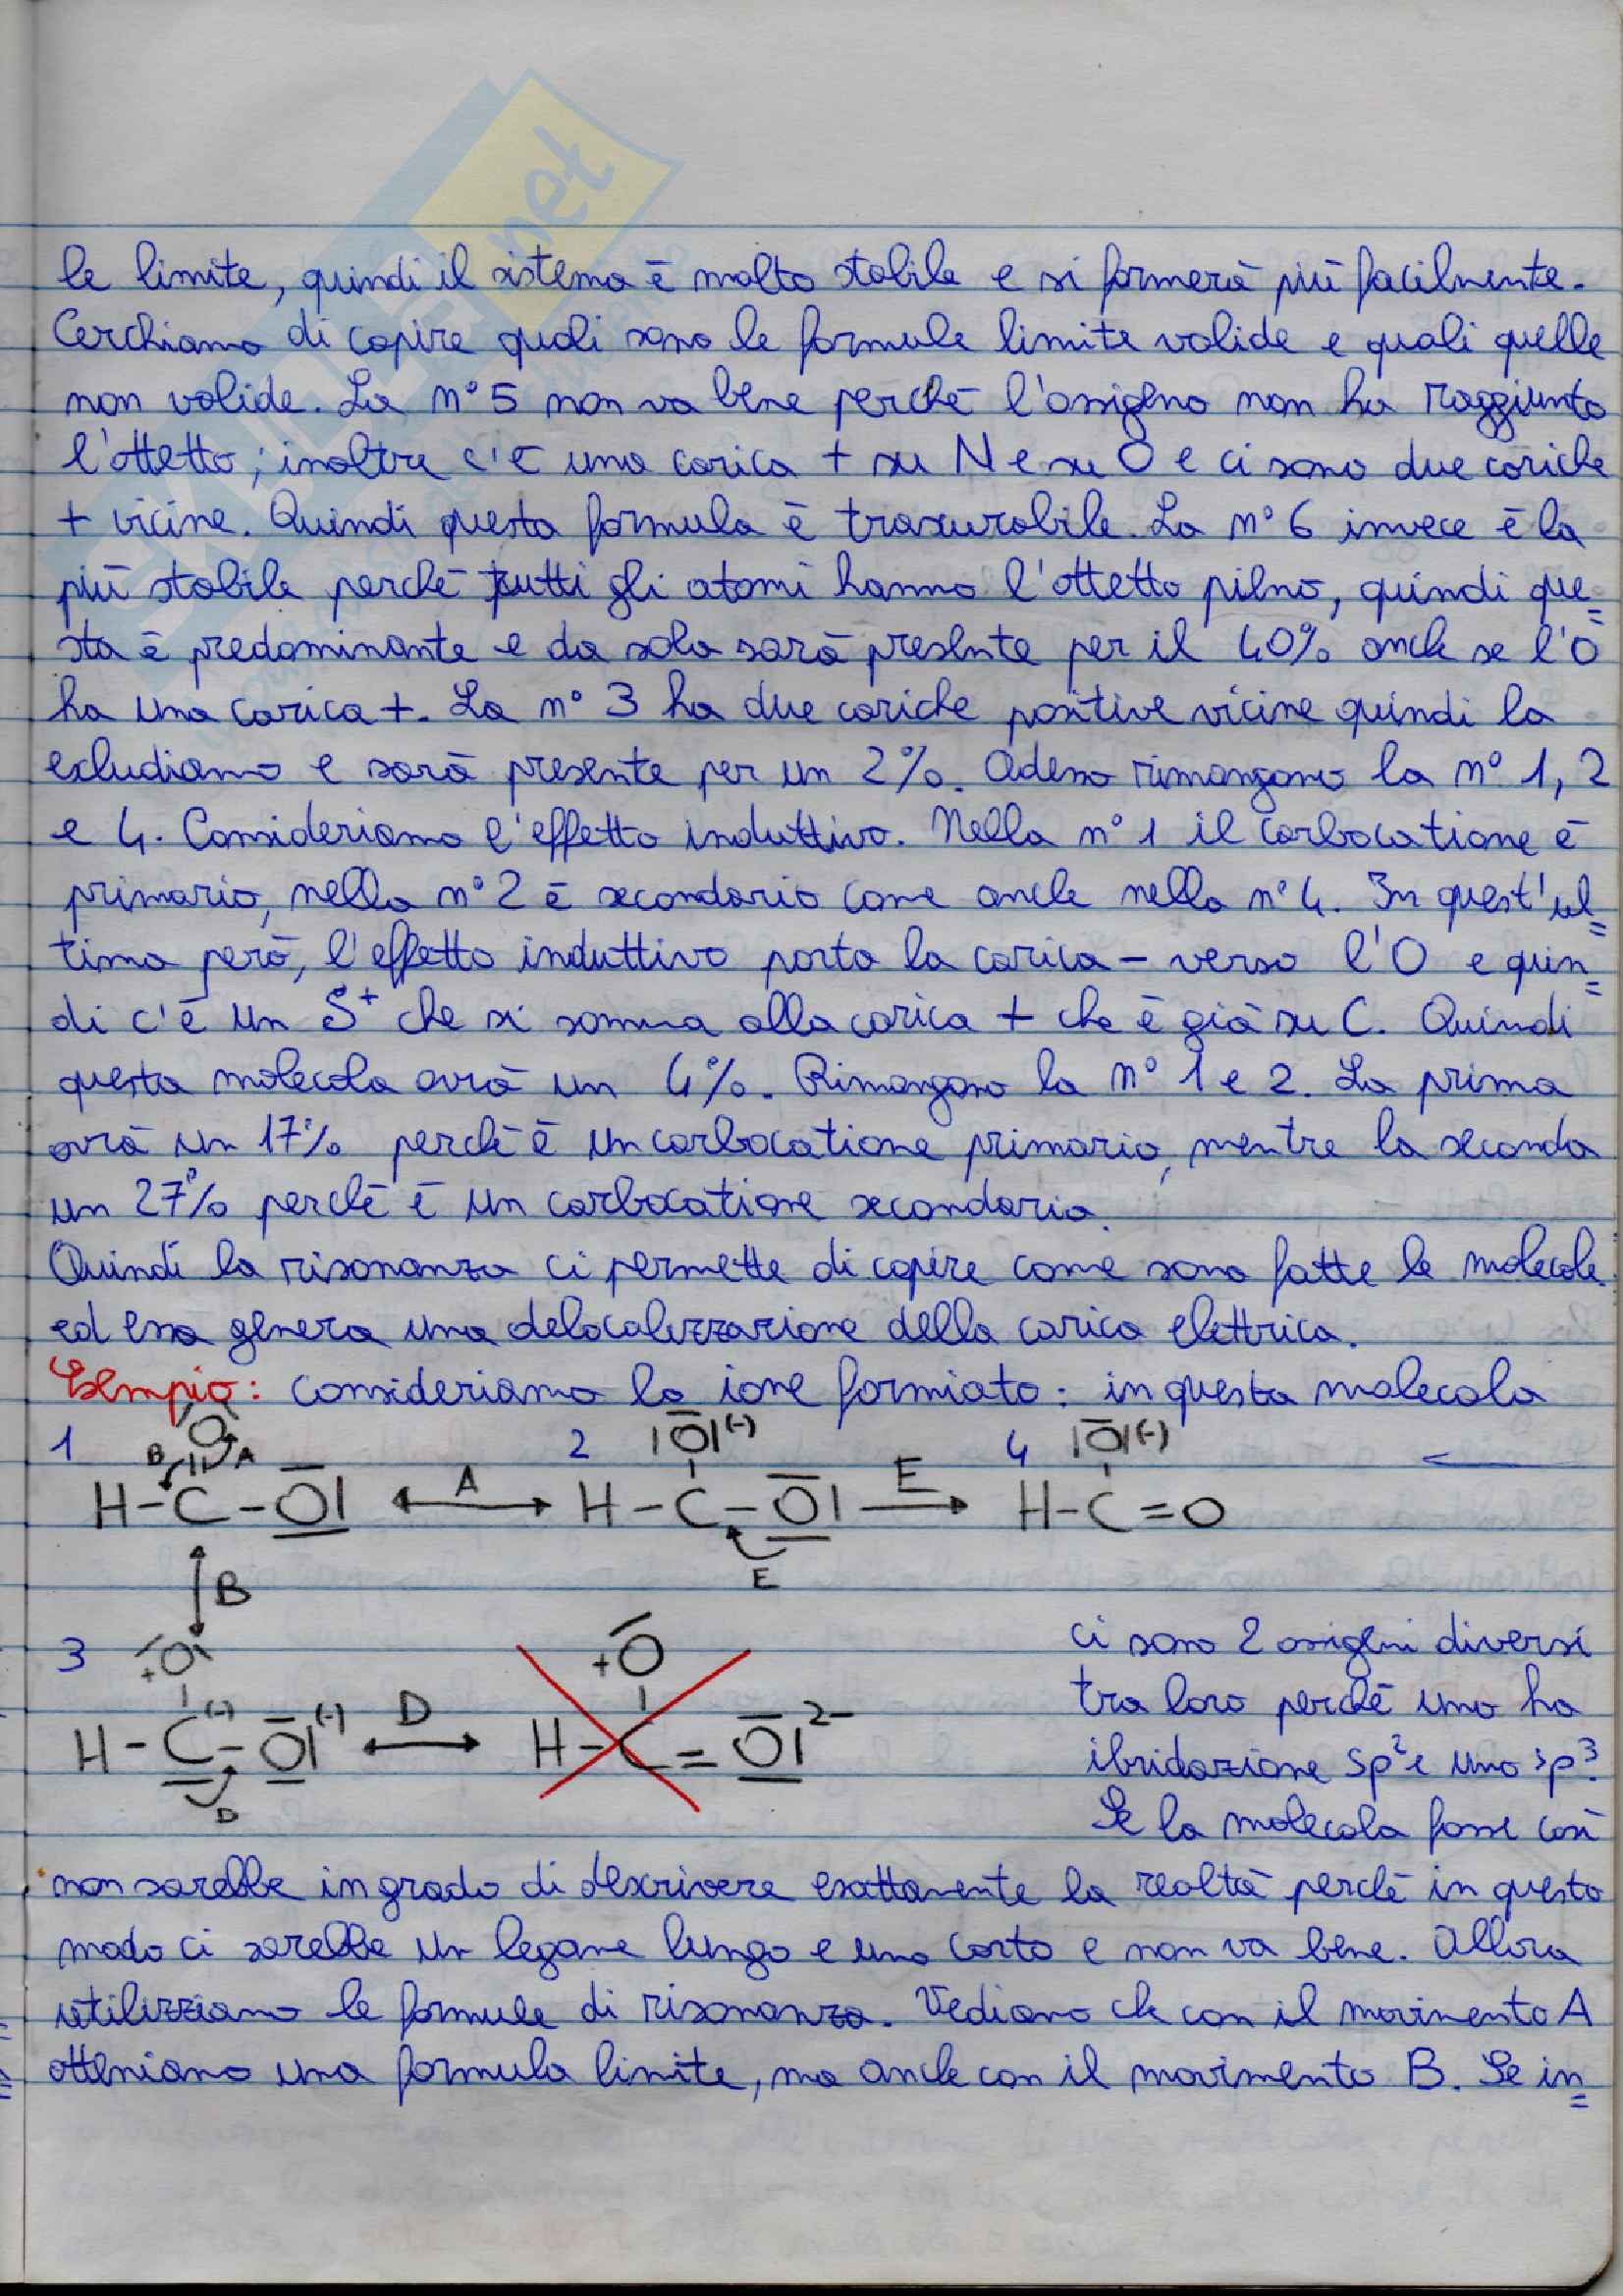 le limite, quindi il sistema è molto stabile e si formerà più facilmente.
Cerchiamo di capire quali sono le formule limite valide e quali quelle
non valide. La n° 5 non va bene perchè l'ossigeno non ha raggiunto
l'ottetto; inoltre c'è una carica + su N e su O e ci sono due cariche
+ vicine. Quindi questa formula è trascurabile. La n° 6 invece è la
più stabile perchè tutti gli atomi hanno l'ottetto pieno, quindi que=
sta è predominante e da sola sarà presente per il 40% anche se l'O
ha una carica +. La n° 3 ha due cariche positive vicine quindi la
escludiamo e sarà presente per un 2%. Adesso rimangono la n° 1, 2
e 4. Consideriamo l'effetto induttivo. Nella n° 1 il carbocatione è
primario, nella n° 2 è secondario come anche nella n° 4. In quest'ul=
tima però, l'effetto induttivo porta la carica - verso l'O e quin=
di c'è un δ+ che si somma alla carica + che è già su C. Quindi
questa molecola avrà un 4%. Rimangono la n° 1 e 2. La prima
avrà un 17% perchè è un carbocatione primario, mentre la seconda
un 27% perchè è un carbocatione secondario.
Quindi la risonanza ci permette di capire come sono fatte le molecole
ed essa genera una delocalizzazione della carica elettrica.
Esempio: consideriamo lo ione formiato: in questa molecola
1 O B A 2 |O|(-) 4 |O|(-)
H-C-O| A H-C-O| E H-C=O
E
B
3 +O +O
H-C(-)-O|(-) D H-C=O|2-
D
ci sono 2 ossigeni diversi
tra loro perchè uno ha
ibridazione sp² e uno sp³.
Se la molecola fosse così
non sarebbe in grado di descrivere esattamente la realtà perchè in questo
modo ci sarebbe un legame lungo e uno corto e non va bene. Allora
utilizziamo le formule di risonanza. Vediamo che con il movimento A
otteniamo una formula limite, ma anche con il movimento B. Se in=